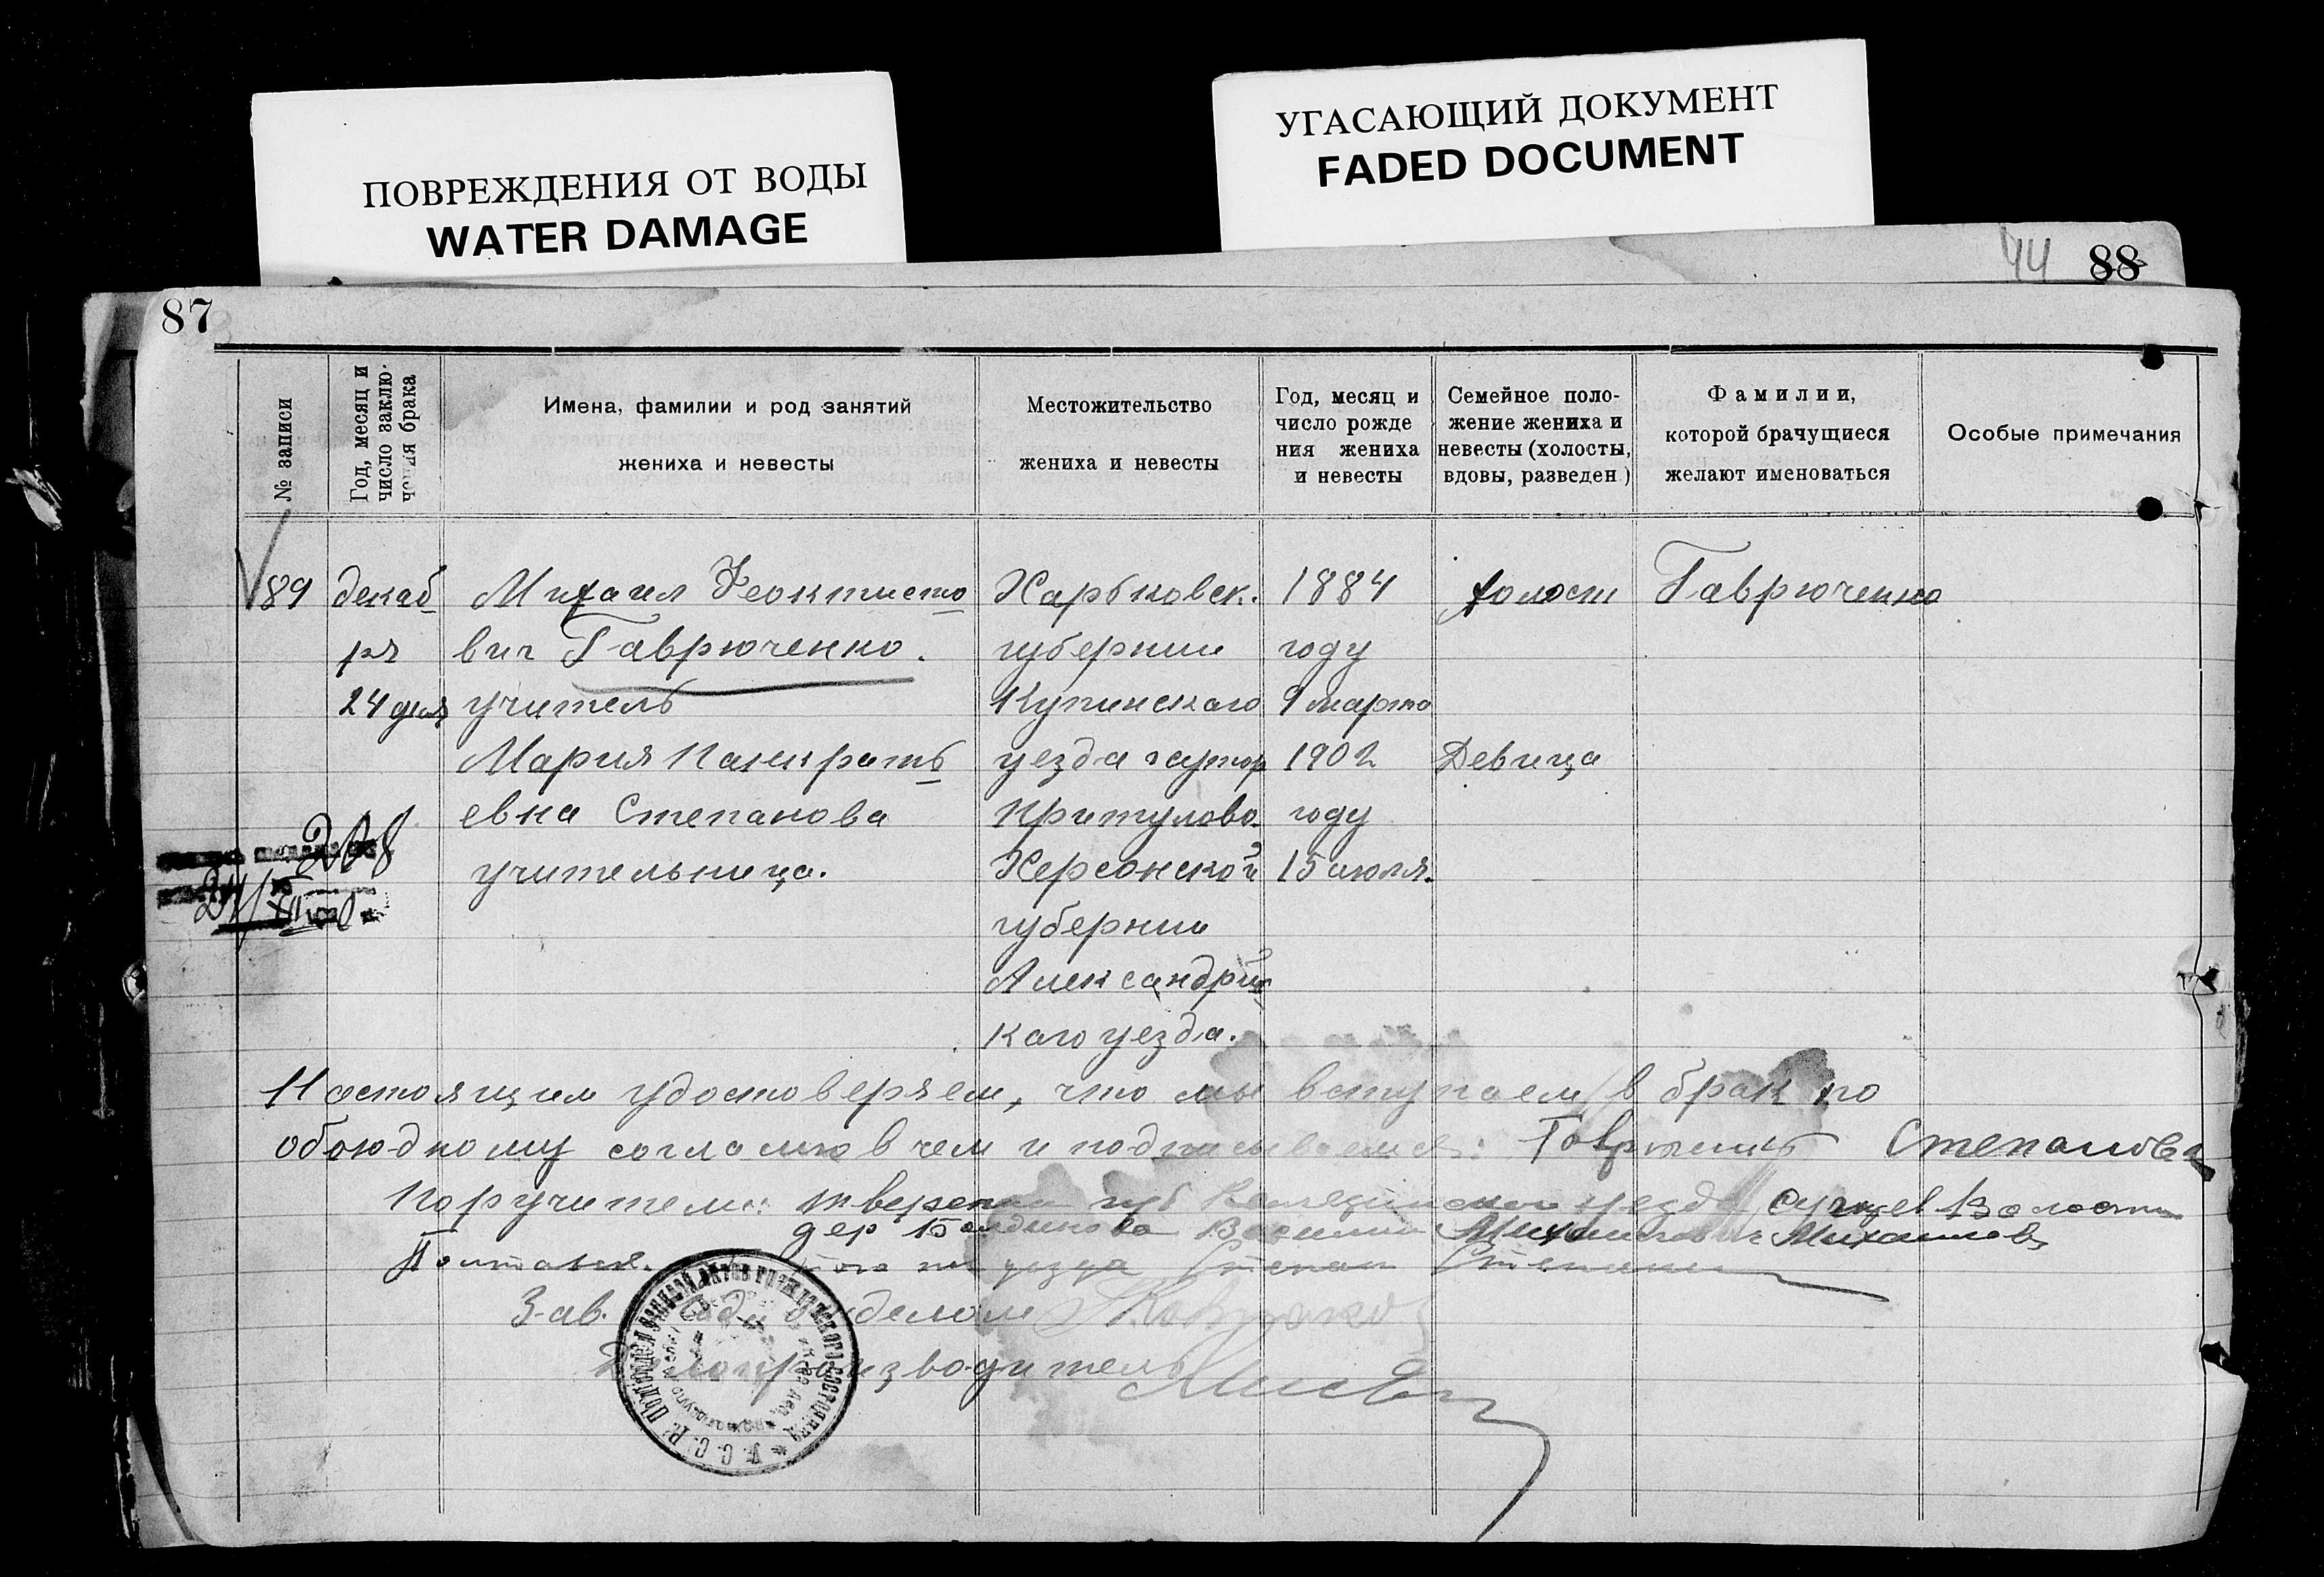 ПОВРЕЖДЕНИЯ ОТ ВОДЫ
WATER DAMAGE
УГАСАЮЩИЙ ДОКУМЕНТ
FADED DOCUMENT
44 88
87
№ записи
Год, месяц и
число заклю-
чения брака
Имена, фамилии и род занятий
жениха и невесты
Местожительство
жениха и невесты
Год, месяц и
число рожде
ния жениха
и невесты
Семейное поло-
жение жениха и
невесты (холосты,
вдовы, разведен)
Фамилии,
которой брачущиеся
желают именоваться
Особые примечания
89
декаб
ря
24 дня
Михаил Феоктисто
вич Гаврюченко.
учитель
Мария Панкрать
евна Степанова
учительница.
Харьковск.
губернии
Купинскаго
уезда хутор
Притулово
Херсонской
губернии
Александрийс
каго уезда.
1884
году
9 марта
1902
году
15 июля.
холост
Девица
Гаврюченко
Настоящим удостоверяем, что мы вступаем в брак по
обоюдному согласию в чем и подписываемся: Степанова
Поручители: Тверской губ уезда волости
дер Василий Михайлович Михайлов
того же уезда Степан
Зав. отделом
Делопроизводитель
У.С.С.Р.